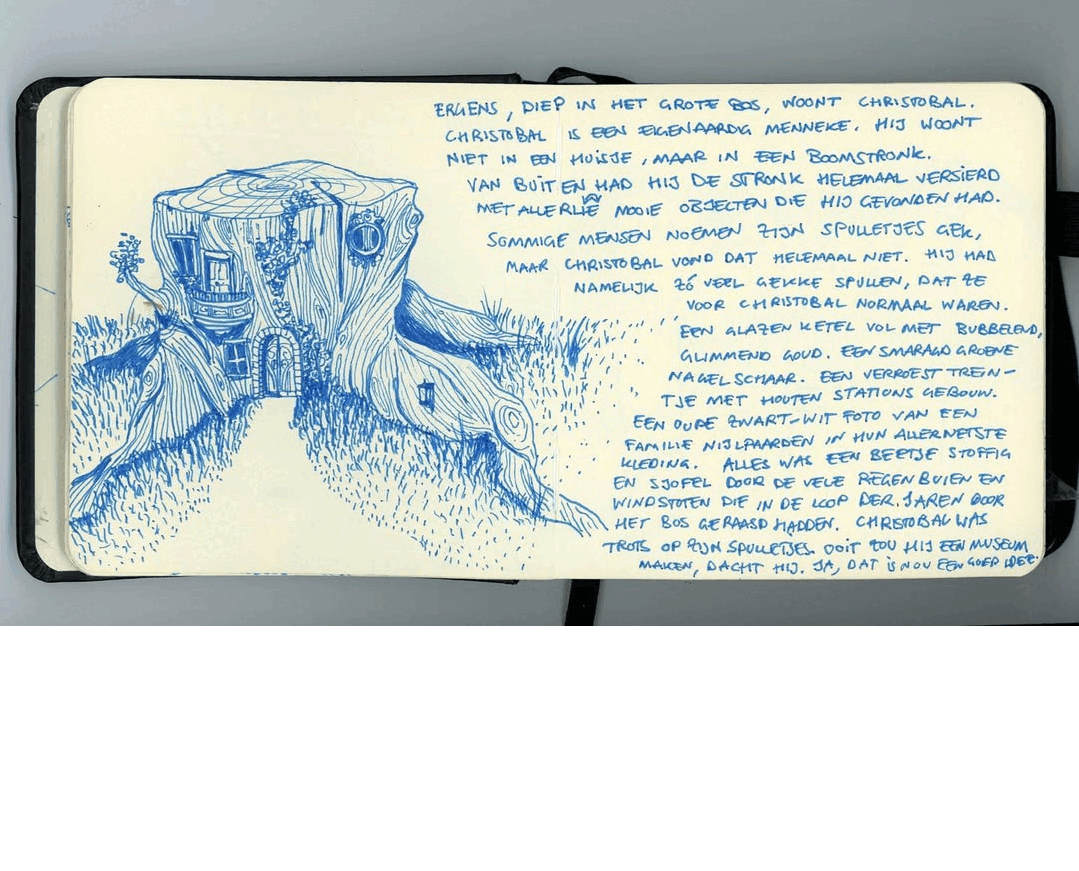 ERGENS, DIEP IN HET GROTE BOS, WOONT CHRISTOBAL.
CHRISTOBAL IS EEN EIGENAARDIG MENNEKE. HIJ WOONT
NIET IN EEN HUISJE, MAAR IN EEN BOOMSTRONK.
VAN BUITEN HAD HIJ DE STRONK HELEMAAL VERSIERD
MET ALLERLEI MOOIE OBJECTEN DIE HIJ GEVONDEN HAD.
SOMMIGE MENSEN NOEMEN ZIJN SPULLETJES GEK,
MAAR CHRISTOBAL VOND DAT HELEMAAL NIET. HIJ HAD
NAMELIJK ZÓ VEEL GEKKE SPULLEN, DAT ZE
VOOR CHRISTOBAL NORMAAL WAREN.
EEN GLAZEN KETEL VOL MET BUBBELEND,
GLIMMEND GOUD. EEN SMARAGD GROENE
NAGELSCHAAR. EEN VERROEST TREIN-
TJE MET HOUTEN STATIONS GEBOUW.
EEN OUDE ZWART-WIT FOTO VAN EEN
FAMILIE NIJLPAARDEN IN HUN ALLERNETSTE
KLEDING. ALLES WAS EEN BEETJE STOFFIG
EN SJOFEL DOOR DE VELE REGENBUIEN EN
WINDSTOTEN DIE IN DE LOOP DER JAREN DOOR
HET BOS GERAASD HADDEN. CHRISTOBAL WAS
TROTS OP ZIJN SPULLETJES. OOIT ZOU HIJ EEN MUSEUM
MAKEN, DACHT HIJ. JA, DAT IS NOU EEN GOED IDEE.